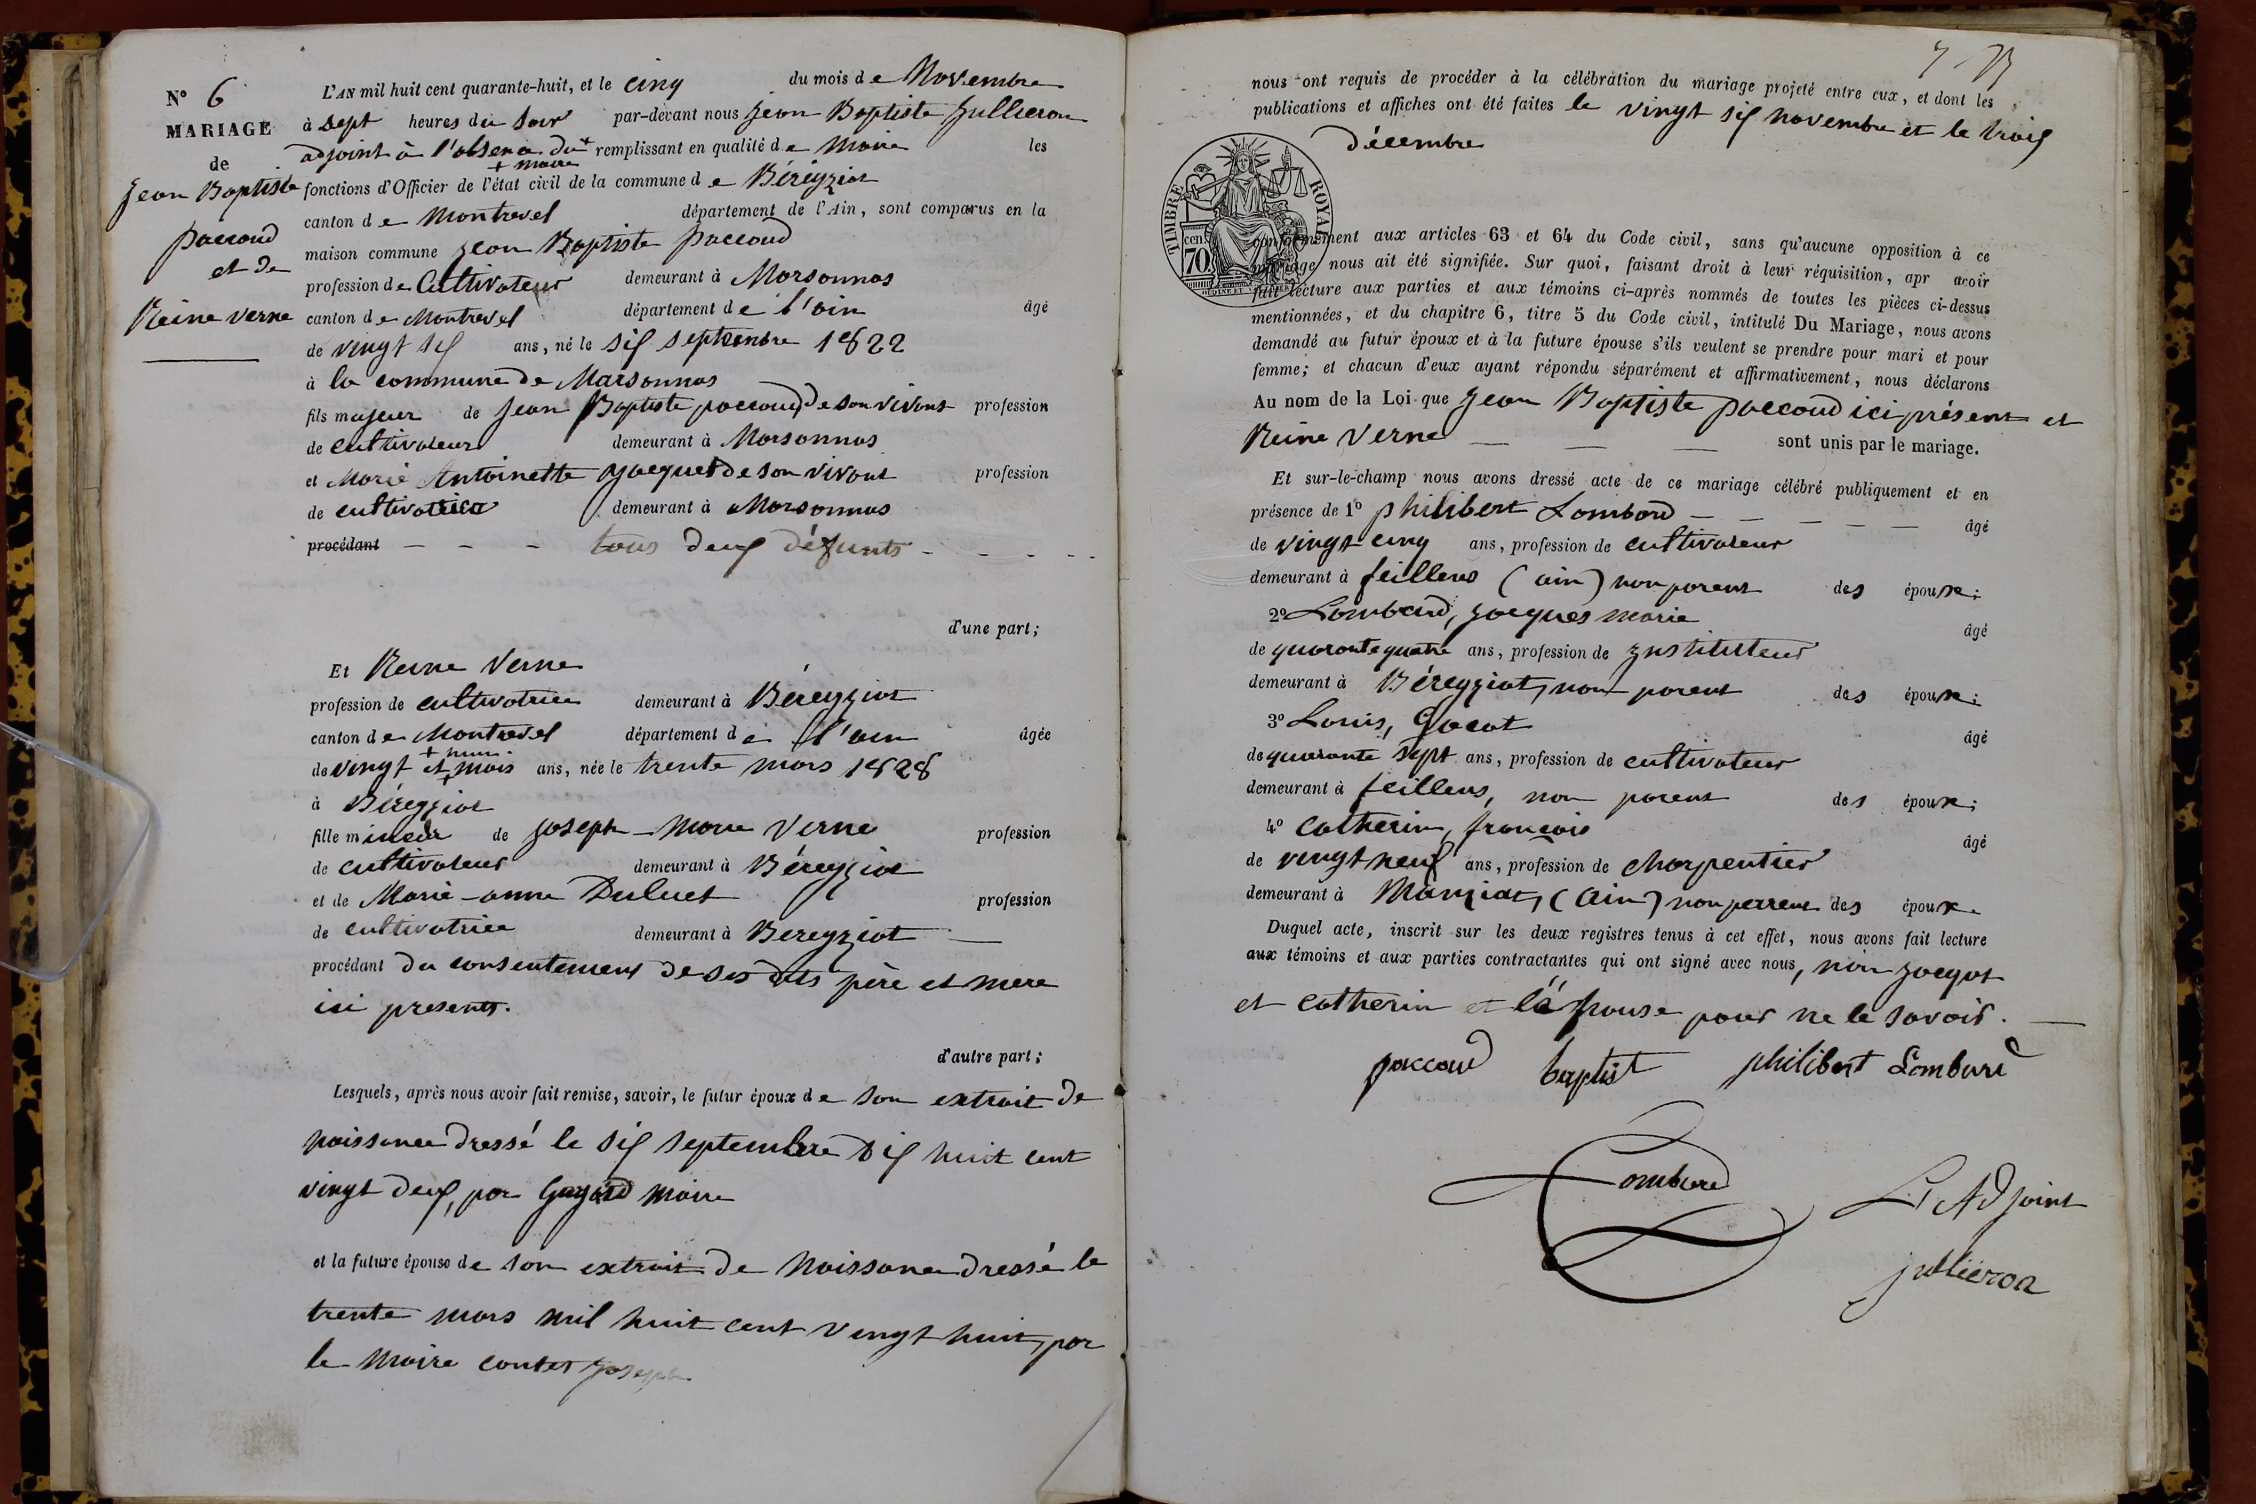 N° 6
MARIAGE
de
Jean Baptiste
paccoud
et de
Reine verne
L'AN mil huit cent quarante-huit, et le cinq du mois de Novembre
à sept heures du soir par-devant nous Jean Baptiste Jullieron
adjoint à l'absence du + remplissant en qualité de Maire les
+ maire
fonctions d'Officier de l'état civil de la commune de Béréyziat
canton de Montrevel département de l'Ain, sont comparus en la
maison commune Jean Baptiste paccoud
profession de Cultivateur demeurant à Marsonnas
canton de Montrevel département de l'ain âgé
de vingt six ans, né le six septembre 1822
à la commune de Marsonnas
fils majeur de Jean Baptiste paccoud de son vivant profession
de cultivateur demeurant à Marsonnas
et Marie Antoinette Jacquet de son vivant profession
de cultivatrice demeurant à Marsonnas
procédant - - - tous deux défunts - - - -
d'une part;
Et Reine Verne
profession de cultivatrice demeurant à Béreyziat
canton de Montrevel département de l'ain âgée
de vingt et mois ans, née le trente mars 1828
à Béreyziat
fille mineur de Joseph-Marie Verne profession
de cultivateur demeurant à Béreyziat
et de Marie-anne profession
de cultivatrice demeurant à Bereyziat —
procédant du consentement de ses dits père et mere
ici presents.
d'autre part;
Lesquels, après nous avoir fait remise, savoir, le futur époux de son extrait de
naissance dressé le six septembre dix huit cent
vingt deux, par Gayard maire
et la future épouse de son extrait de Naissance dressé le
trente mars mil huit cent vingt huit, par
le Maire contet Joseph
7
nous ont requis de procéder à la célébration du mariage projeté entre eux, et dont les
publications et affiches ont été faites le vingt six novembre et le trois
décembre
TIMBRE ROYAL
70
conformément aux articles 63 et 64 du Code civil, sans qu'aucune opposition à ce
mariage nous ait été signifiée. Sur quoi, faisant droit à leur réquisition, apr avoir
fait lecture aux parties et aux témoins ci-après nommés de toutes les pièces ci-dessus
mentionnées, et du chapitre 6, titre 5 du Code civil, intitulé Du Mariage, nous avons
demandé au futur époux et à la future épouse s'ils veulent se prendre pour mari et pour
femme; et chacun d'eux ayant répondu séparément et affirmativement, nous déclarons
Au nom de la Loi que Jean Baptiste paccoud ici présent et
Reine Verne — — — sont unis par le mariage.
Et sur-le-champ nous avons dressé acte de ce mariage célébré publiquement et en
présence de 1° philibert Lombard — — — — — âgé
de vingt cinq ans, profession de cultivateur
demeurant à feillens (ain) non parent des époux;
2° Lombard, Jacques marie âgé
de quarante quatre ans, profession de Instituteur
demeurant à Béreyziat, non parent des époux;
3° Louis, Jacot âgé
de quarante sept ans, profession de cultivateur
demeurant à feillens, non parent des époux;
4° Catherin, françois âgé
de vingt neuf ans, profession de charpentier
demeurant à Manziat, (Ain) non parent des époux.
Duquel acte, inscrit sur les deux registres tenus à cet effet, nous avons fait lecture
aux témoins et aux parties contractantes qui ont signé avec nous, non Jacquot
et Catherin et l'épouse pour ne le savoir. —
paccoud baptist philibert Lombard
Lombard
L'Adjoint
jullieron